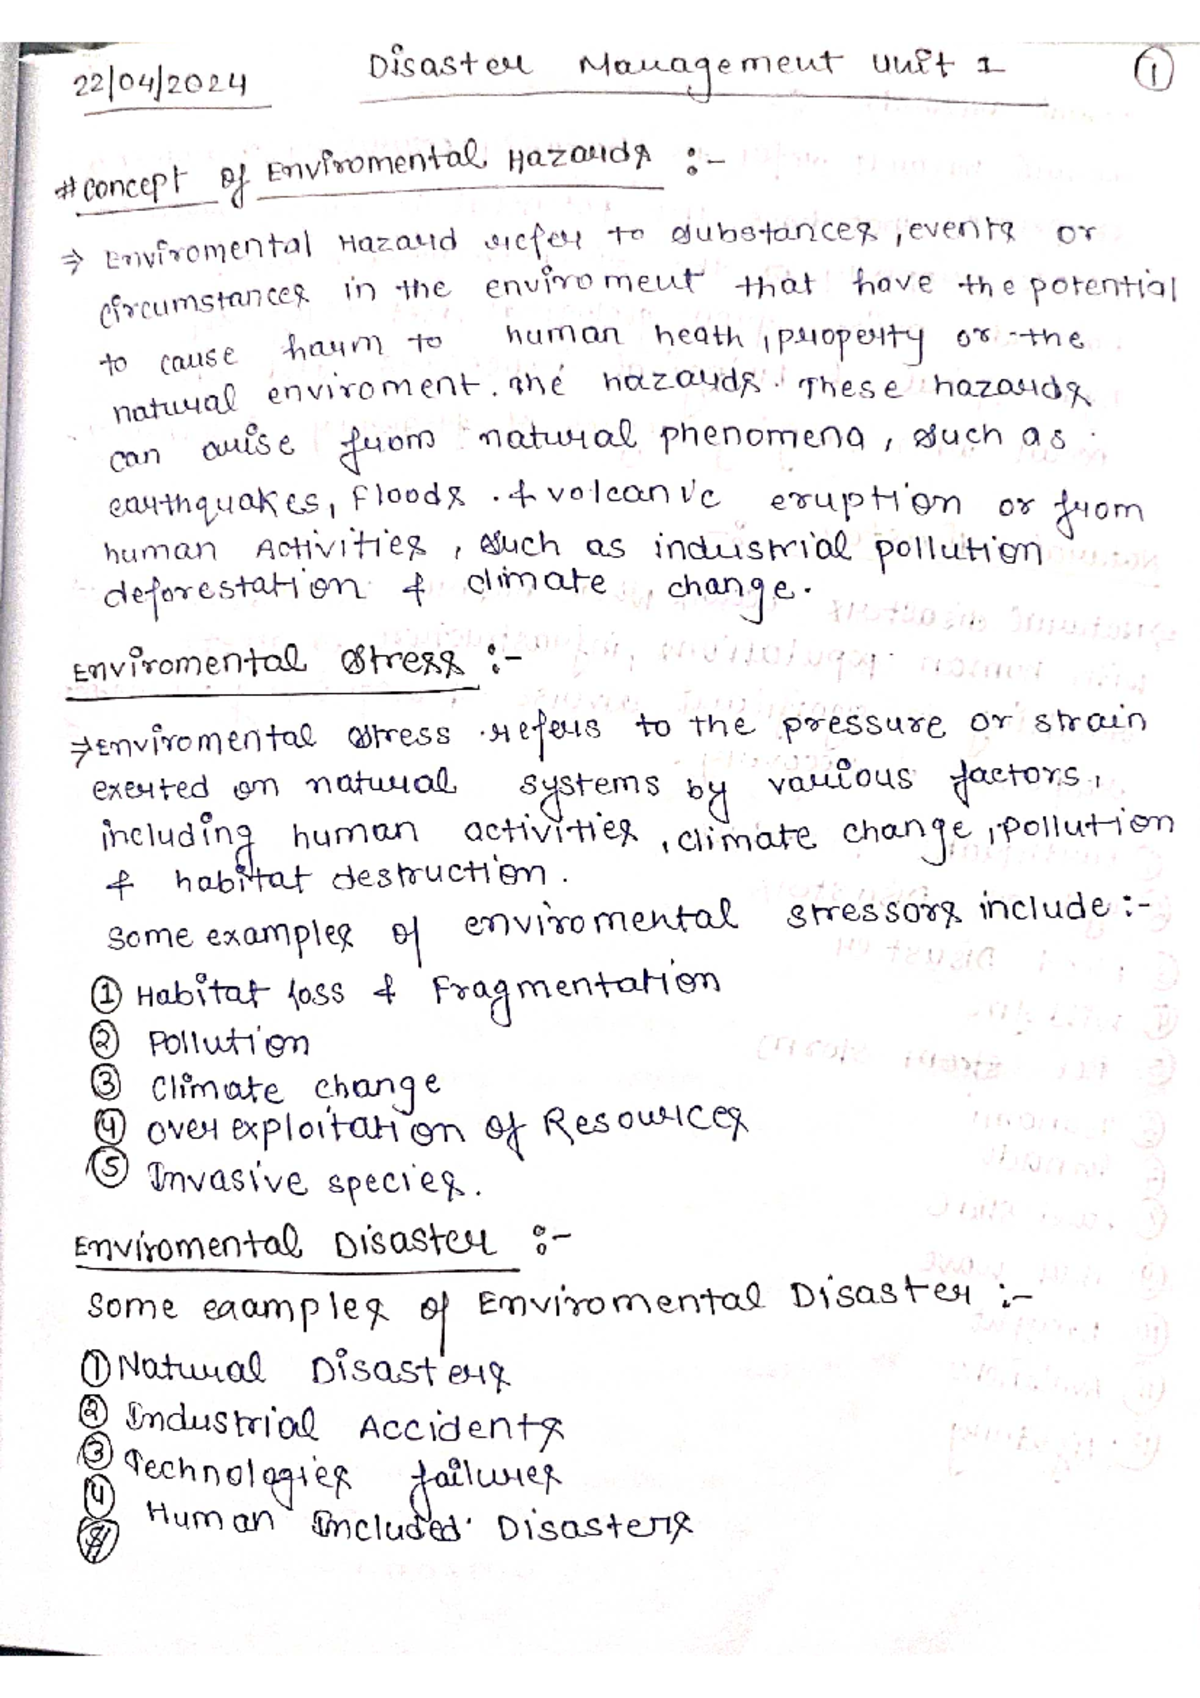 22/04/2024 Disaster Management Unit 1 ①
# Concept of Enviromental Hazards :-
⇒ Enviromental Hazard refer to substances, events or
circumstances in the enviroment that have the potential
to cause harm to human heath, property or the
natural enviroment. The hazards. These hazards
can arise from natural phenomena, such as
earthquakes, Floods. & volcanic eruption or from
human Activities, such as industrial pollution
deforestation & climate change.
Enviromental Stress :-
⇒ Enviromental Stress refers to the pressure or strain
exerted on natural systems by various factors,
including human activities, climate change, pollution
& habitat destruction.
Some examples of enviromental stressors include :-
① Habitat loss & Fragmentation
② Pollution
③ Climate change
④ over exploitation of Resources
⑤ Invasive species.
Enviromental Disaster :-
Some examples of Enviromental Disaster :-
① Natural Disasters
② Industrial Accidents
③ Technologies failures
④ Human Included Disasters